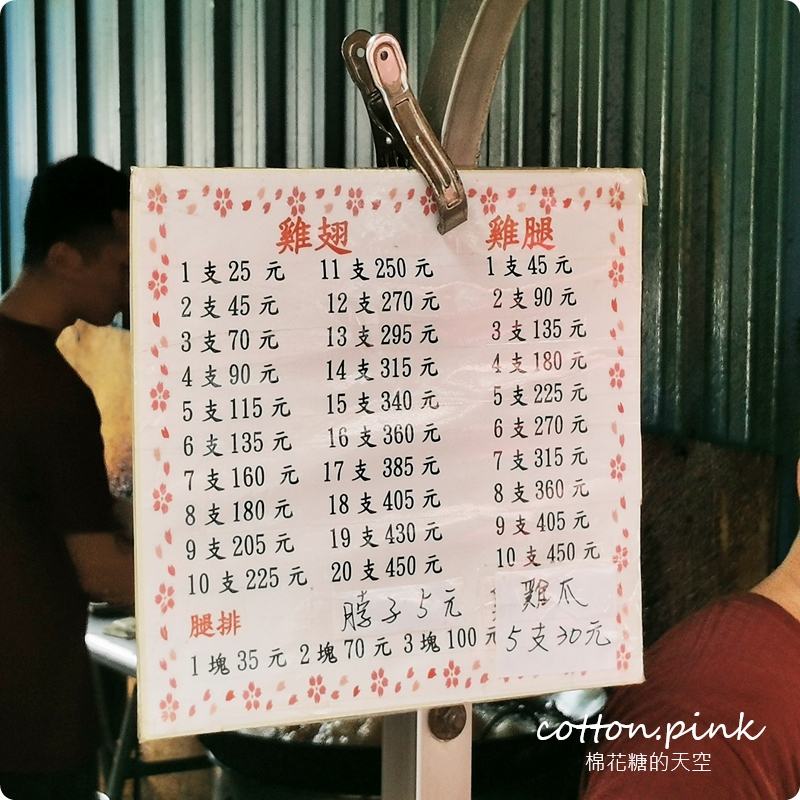 雞翅
1支25 元
2支45 元
3支70 元
4支90 元
5支115 元
6支135 元
7支160 元
8支180 元
9支205 元
10支225 元
11支250 元
12支270 元
13支295 元
14支315 元
15支340 元
16支360 元
17支 385 元
18支405 元
19支430 元
20支450 元
雞腿
1支45 元
2支90 元
3支135 元
4支180 元
5支225 元
6支270 元
7支315 元
8支360 元
9支405 元
10支450 元
腿排
1塊35元 2塊70元 3塊100元
脖子5元
雞爪
5支30元
cotton.pink
棉花糖的天空